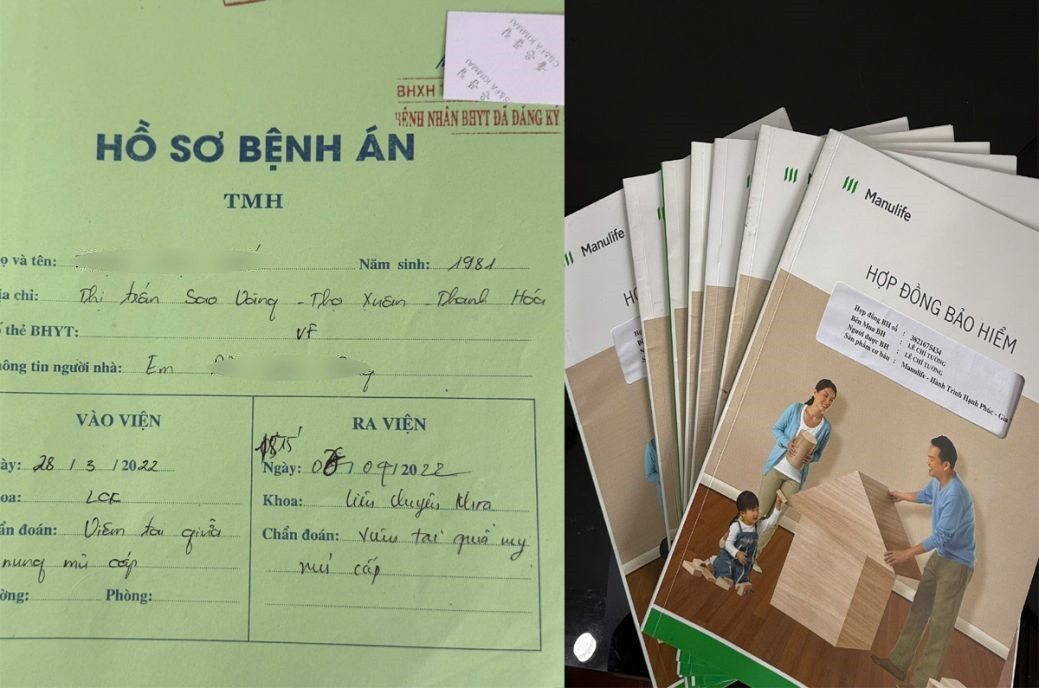 BHXH
BỆNH NHÂN BHYT ĐÃ ĐĂNG KÝ
HỒ SƠ BỆNH ÁN
TMH
ọ và tên:
Năm sinh: 1981
ịa chỉ: Thị trấn Sao Vàng - Thọ Xuân - Thanh Hóa
ố thẻ BHYT: VF
hông tin người nhà: Em
VÀO VIỆN
ày: 28 / 3 / 2022
oa: LCK
ẩn đoán: Viêm tai giữa
nung mủ cấp
ường: Phòng:
RA VIỆN
Ngày: /2022
Khoa: Liên chuyên khoa
Chẩn đoán: Viêm tai giữa
mủ cấp
Manulife
HỢ
Manulife
HỢP ĐỒNG BẢO HIỂM
Hợp đồng BH số : 3821675434
Bên Mua BH : LÊ CHÍ TƯỜNG
Người được BH : LÊ CHÍ TƯỜNG
Sản phẩm cơ bản : Manulife - Hành Trình Hạnh Phúc - Gia